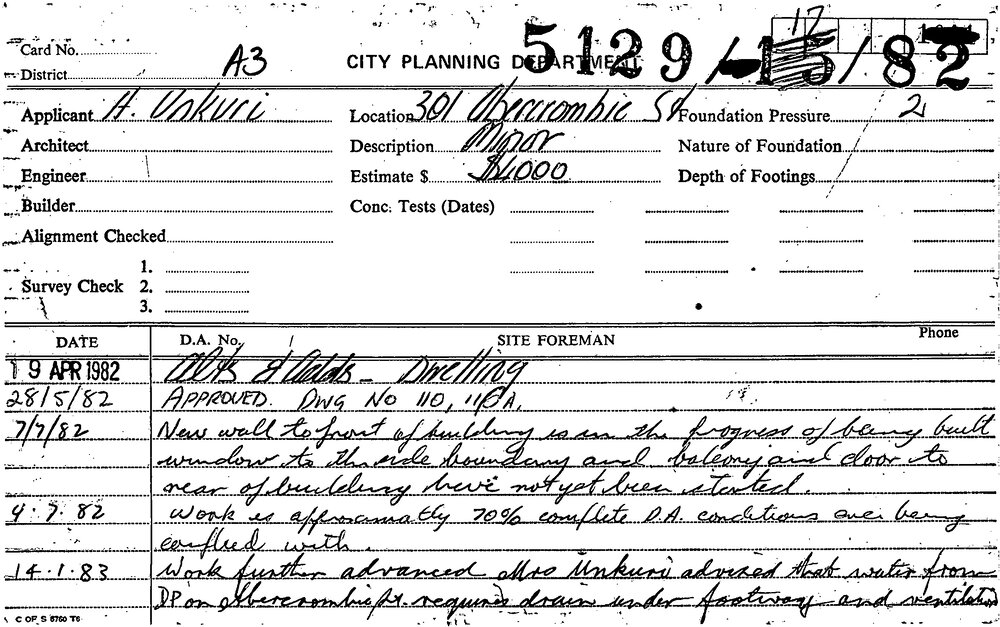 17
Card No.
District A3 CITY PLANNING DEPARTMENT 5129/15/82
Applicant H. Unkuri Location 301 Abercrombie St Foundation Pressure 2
Architect Description Minor Nature of Foundation
Engineer Estimate $ $4000 Depth of Footings
Builder Conc. Tests (Dates)
Alignment Checked
1.
Survey Check 2.
3.
DATE D.A. No. SITE FOREMAN Phone
19 APR 1982 Alts & Adds - Dwelling
28/5/82 APPROVED. DWG NO 110, 110A.
7/7/82 New wall to front of building is in the progress of being built
window to the side boundary and balcony and door to
rear of building have not yet been started.
9.7.82 Work is approximatly 70% complete D.A. conditions are being
complied with.
14.1.83 Work further advanced Mrs Unkuri advised that water from
DP on Abercrombie St. requires drain under footway and ventilation
C OF S 6750 T6